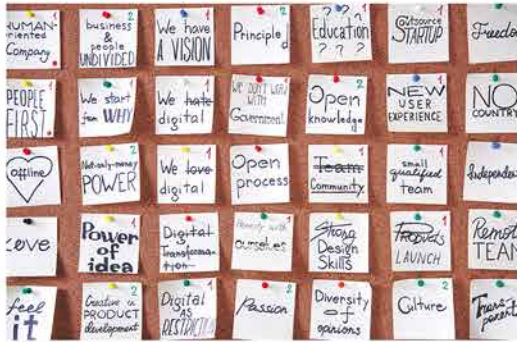 HUMAN-
oriented
Company.
2
business
&
people
UNDIVIDED
1
We have
A VISION
2
Principle
1
Education
? ? ?
1
Outsource
STARTUP
Freedom
PEOPLE
FIRST.
2
We start
from WHY
1
We hate
digital
1
WE DON'T WORK
WITH
Government
2
Open
knowledge
1
NEW
USER
EXPERIENCE
NO
COUNTRY
offline
2
Not-only-money
POWER
1
We love
digital
1
Open
process
1
Team
Community
1
small
qualified
team
Independen
Love
1
Power
of
idea
1
Digital
Transforma-
tion
1
Honesty with
ourselves
1
Strong
Design
Skills
1
Products
LAUNCH
Remote
TEAM
feel
it
2
Creative in
PRODUCT
development
1
Digital
AS
RESTRICTION
2
Passion
2
Diversity
of
opinions
2
Culture
Trans
parent